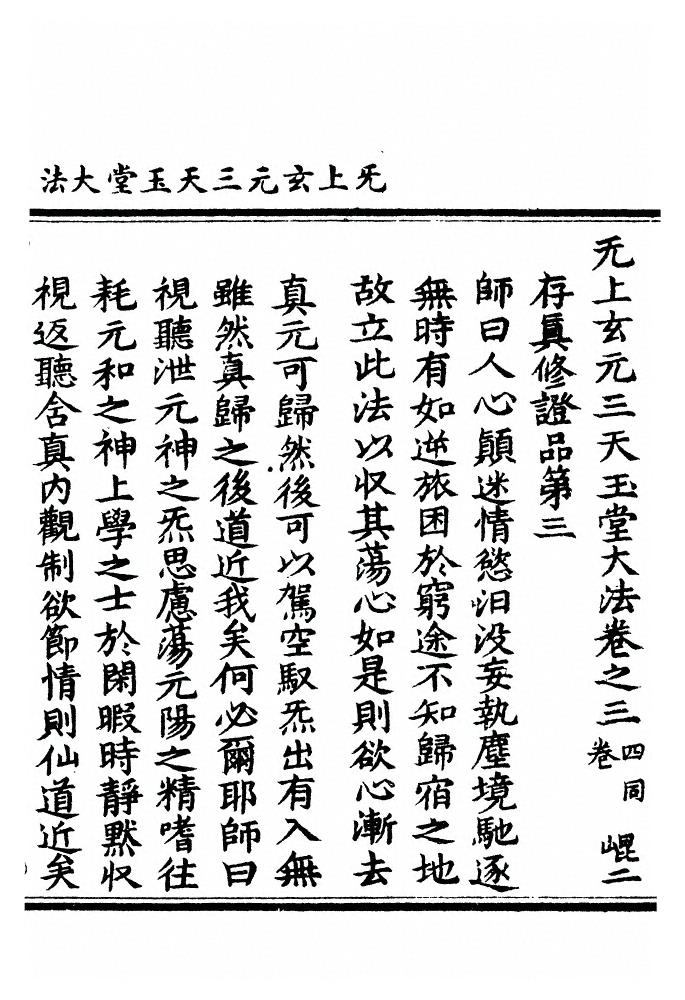 无上玄元三天玉堂大法
无上玄元三天玉堂大法卷之三 四同卷 崐二
存真修證品第三
師曰人心顛迷情慾汨没妄執塵境馳逐
無時有如逆旅困於窮途不知歸宿之地
故立此法以収其蕩心如是則欲心漸去
真元可歸然後可以駕空馭炁出有入無
雖然真歸之後道近我矣何必爾耶師曰
視聽泄元神之炁思慮蕩元陽之精嗜往
耗元和之神上學之士於閑暇時靜默収
視返聽舍真内觀制欲節情則仙道近矣